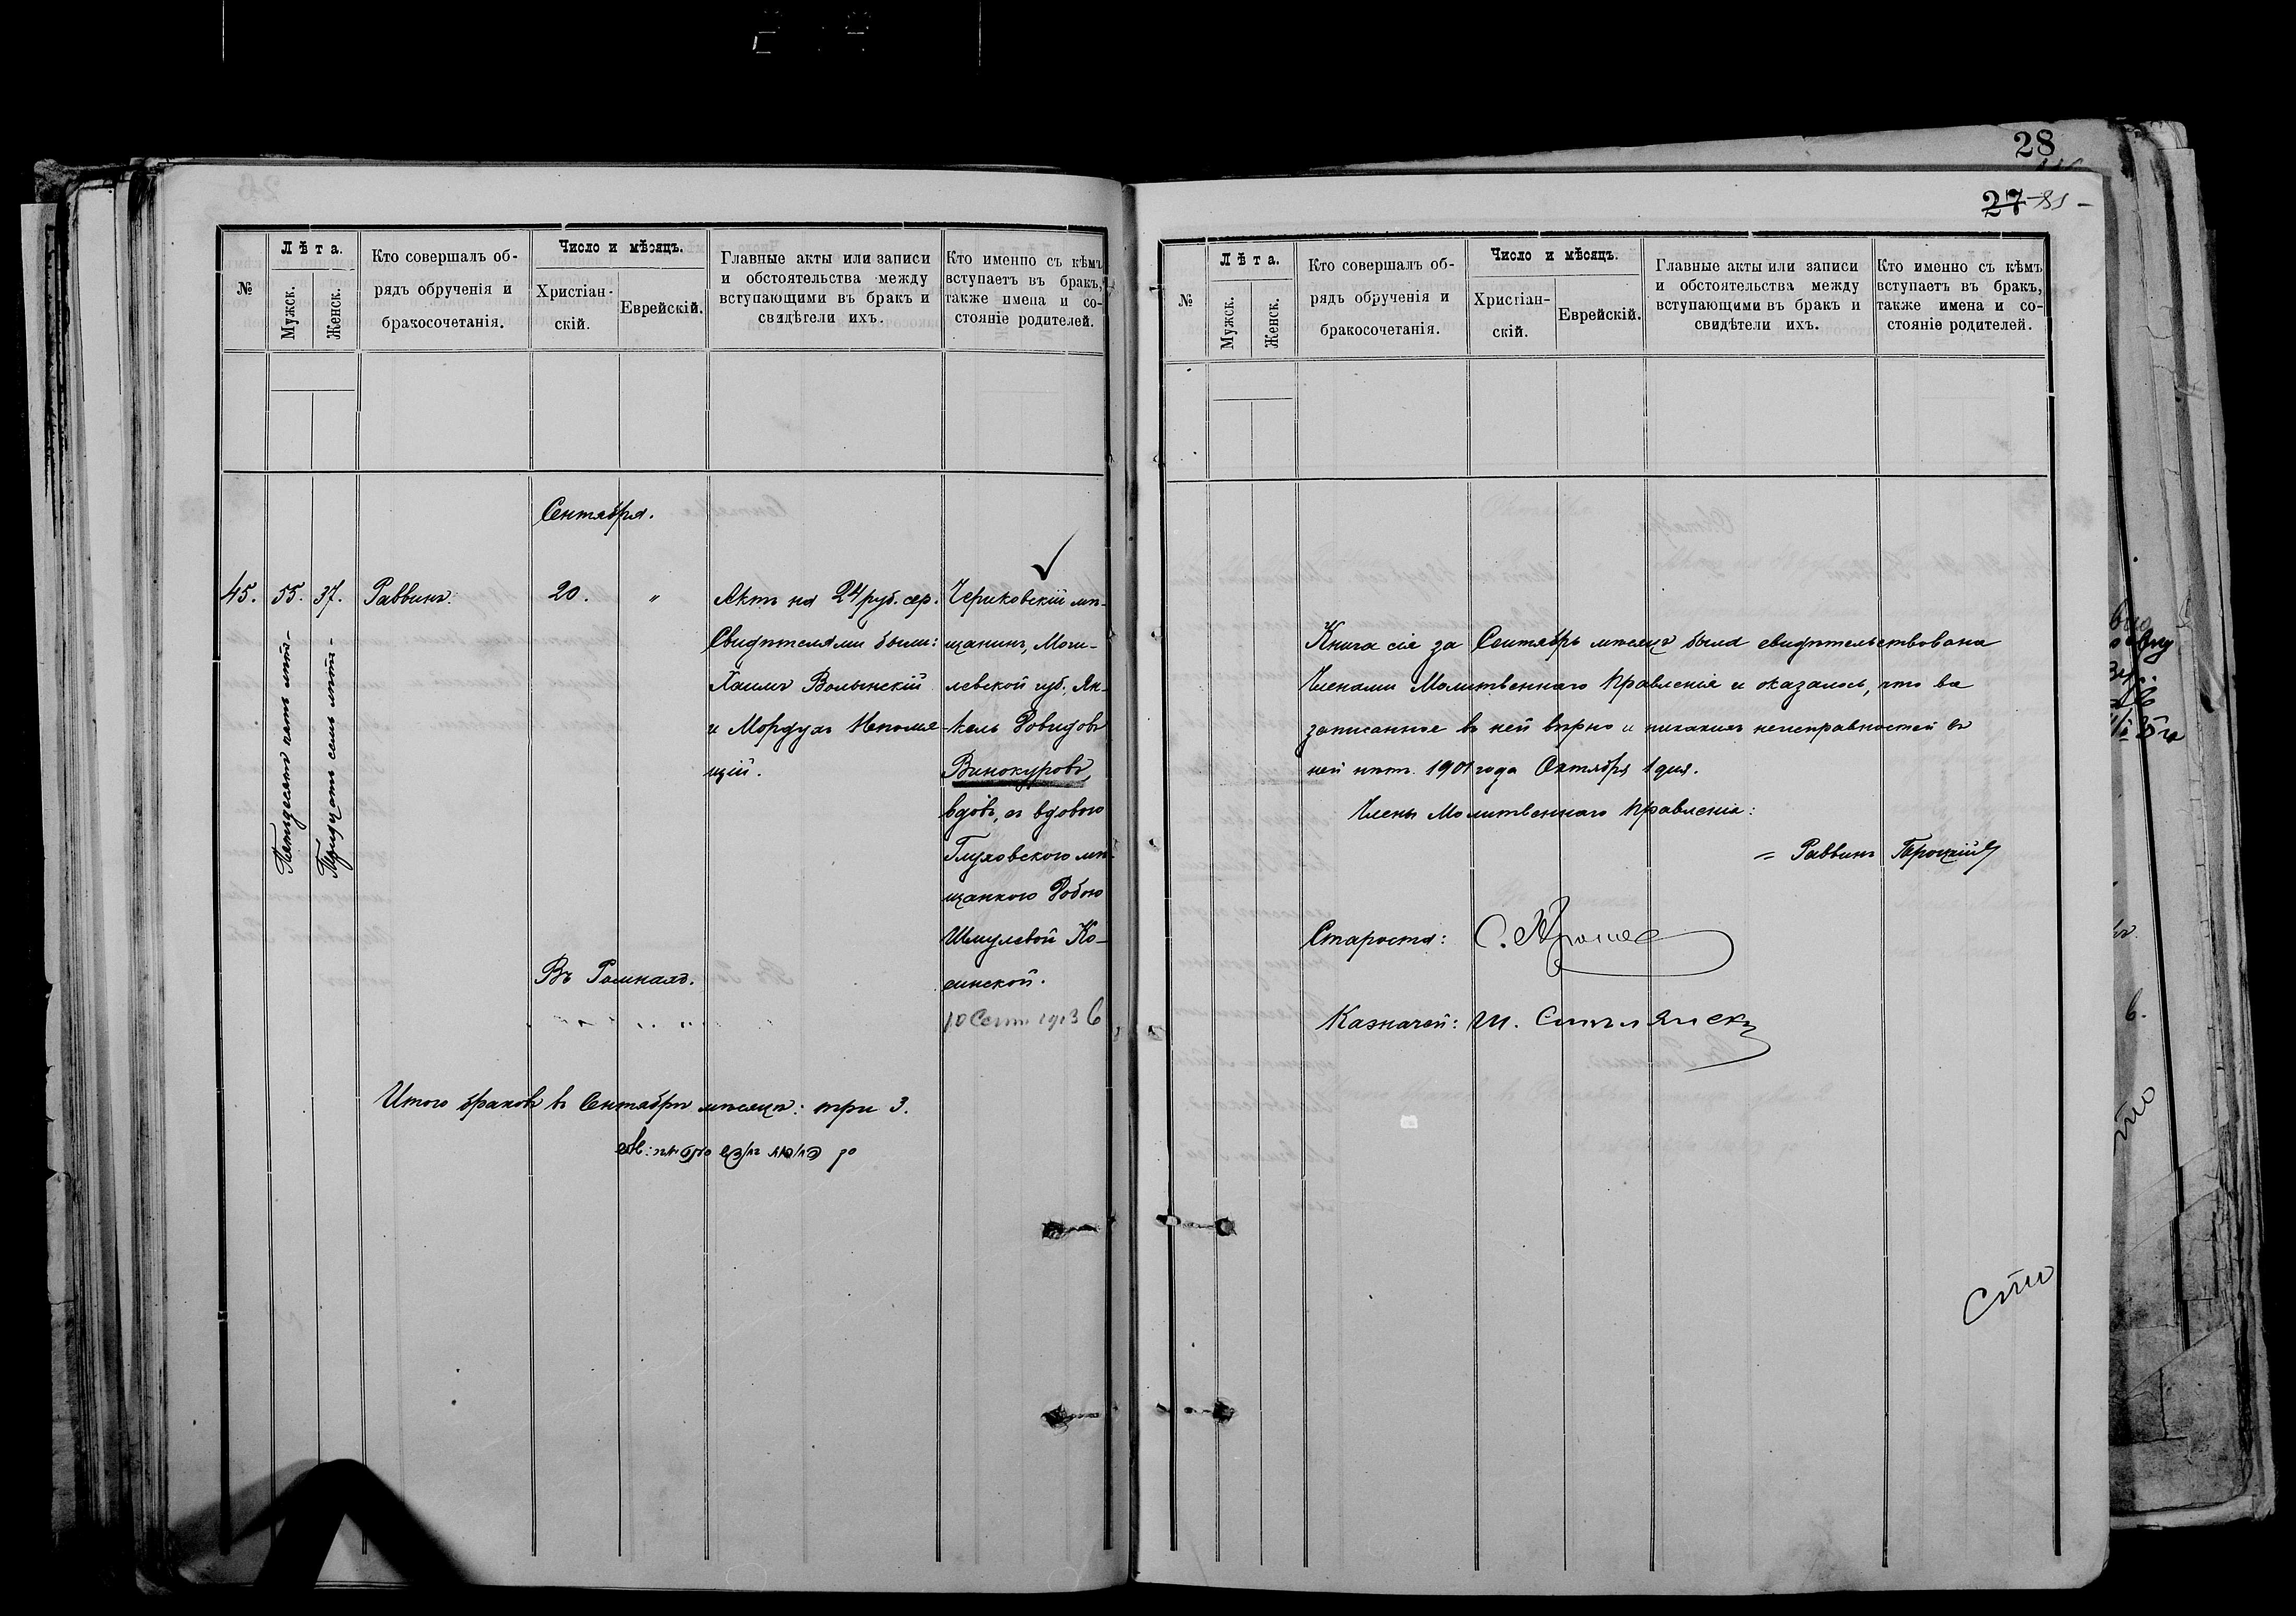 28
27
№
Лѣта.
Мужск.
Женск.
Кто совершалъ об-
рядъ обрученія и
бракосочетанія.
Число и мѣсяцъ.
Христіан-
скій.
Еврейскій.
Главные акты или записи
и обстоятельства между
вступающими въ бракъ и
свидѣтели ихъ.
Кто именно съ кѣмъ
вступаетъ въ бракъ,
также имена и со-
стояніе родителей.
Сентября.
45.
55.
Пятьдесятъ пять лѣтъ
37.
Тридцать семь лѣтъ
Раввинъ.
20.
"
Актъ на 24 руб. сер.
Свидѣтелями были:
Хаимъ Волынскій
и Мордухъ Непомня-
щій.
Чериковскій мѣ-
щанинъ, Моги-
левской губ. Ян-
кель Довидовъ
Винокуровъ,
вдовъ, съ вдовою
Глуховскою мѣ-
щанкою Добою
Шмулевой Ко-
синской.
10 Сент. 1913
Въ Ромнахъ.
Итого браковъ въ Сентябрѣ мѣсяцѣ: три 3.
№
Лѣта.
Мужск.
Женск.
Кто совершалъ об-
рядъ обрученія и
бракосочетанія.
Число и мѣсяцъ.
Христіан-
скій.
Еврейскій.
Главные акты или записи
и обстоятельства между
вступающими въ бракъ и
свидѣтели ихъ.
Кто именно съ кѣмъ
вступаетъ въ бракъ,
также имена и со-
стояніе родителей.
Книга сія за Сентябрь мѣсяцъ была свидѣтельствована
Членами Молитвеннаго Правленія и оказалось, что все
записанное въ ней вѣрно и никакихъ неисправностей въ
ней нѣтъ. 1901 года Октября 1 дня.
Члены Молитвеннаго Правленія:
= Раввинъ
Староста: С.
Казначей: Ш.
сто